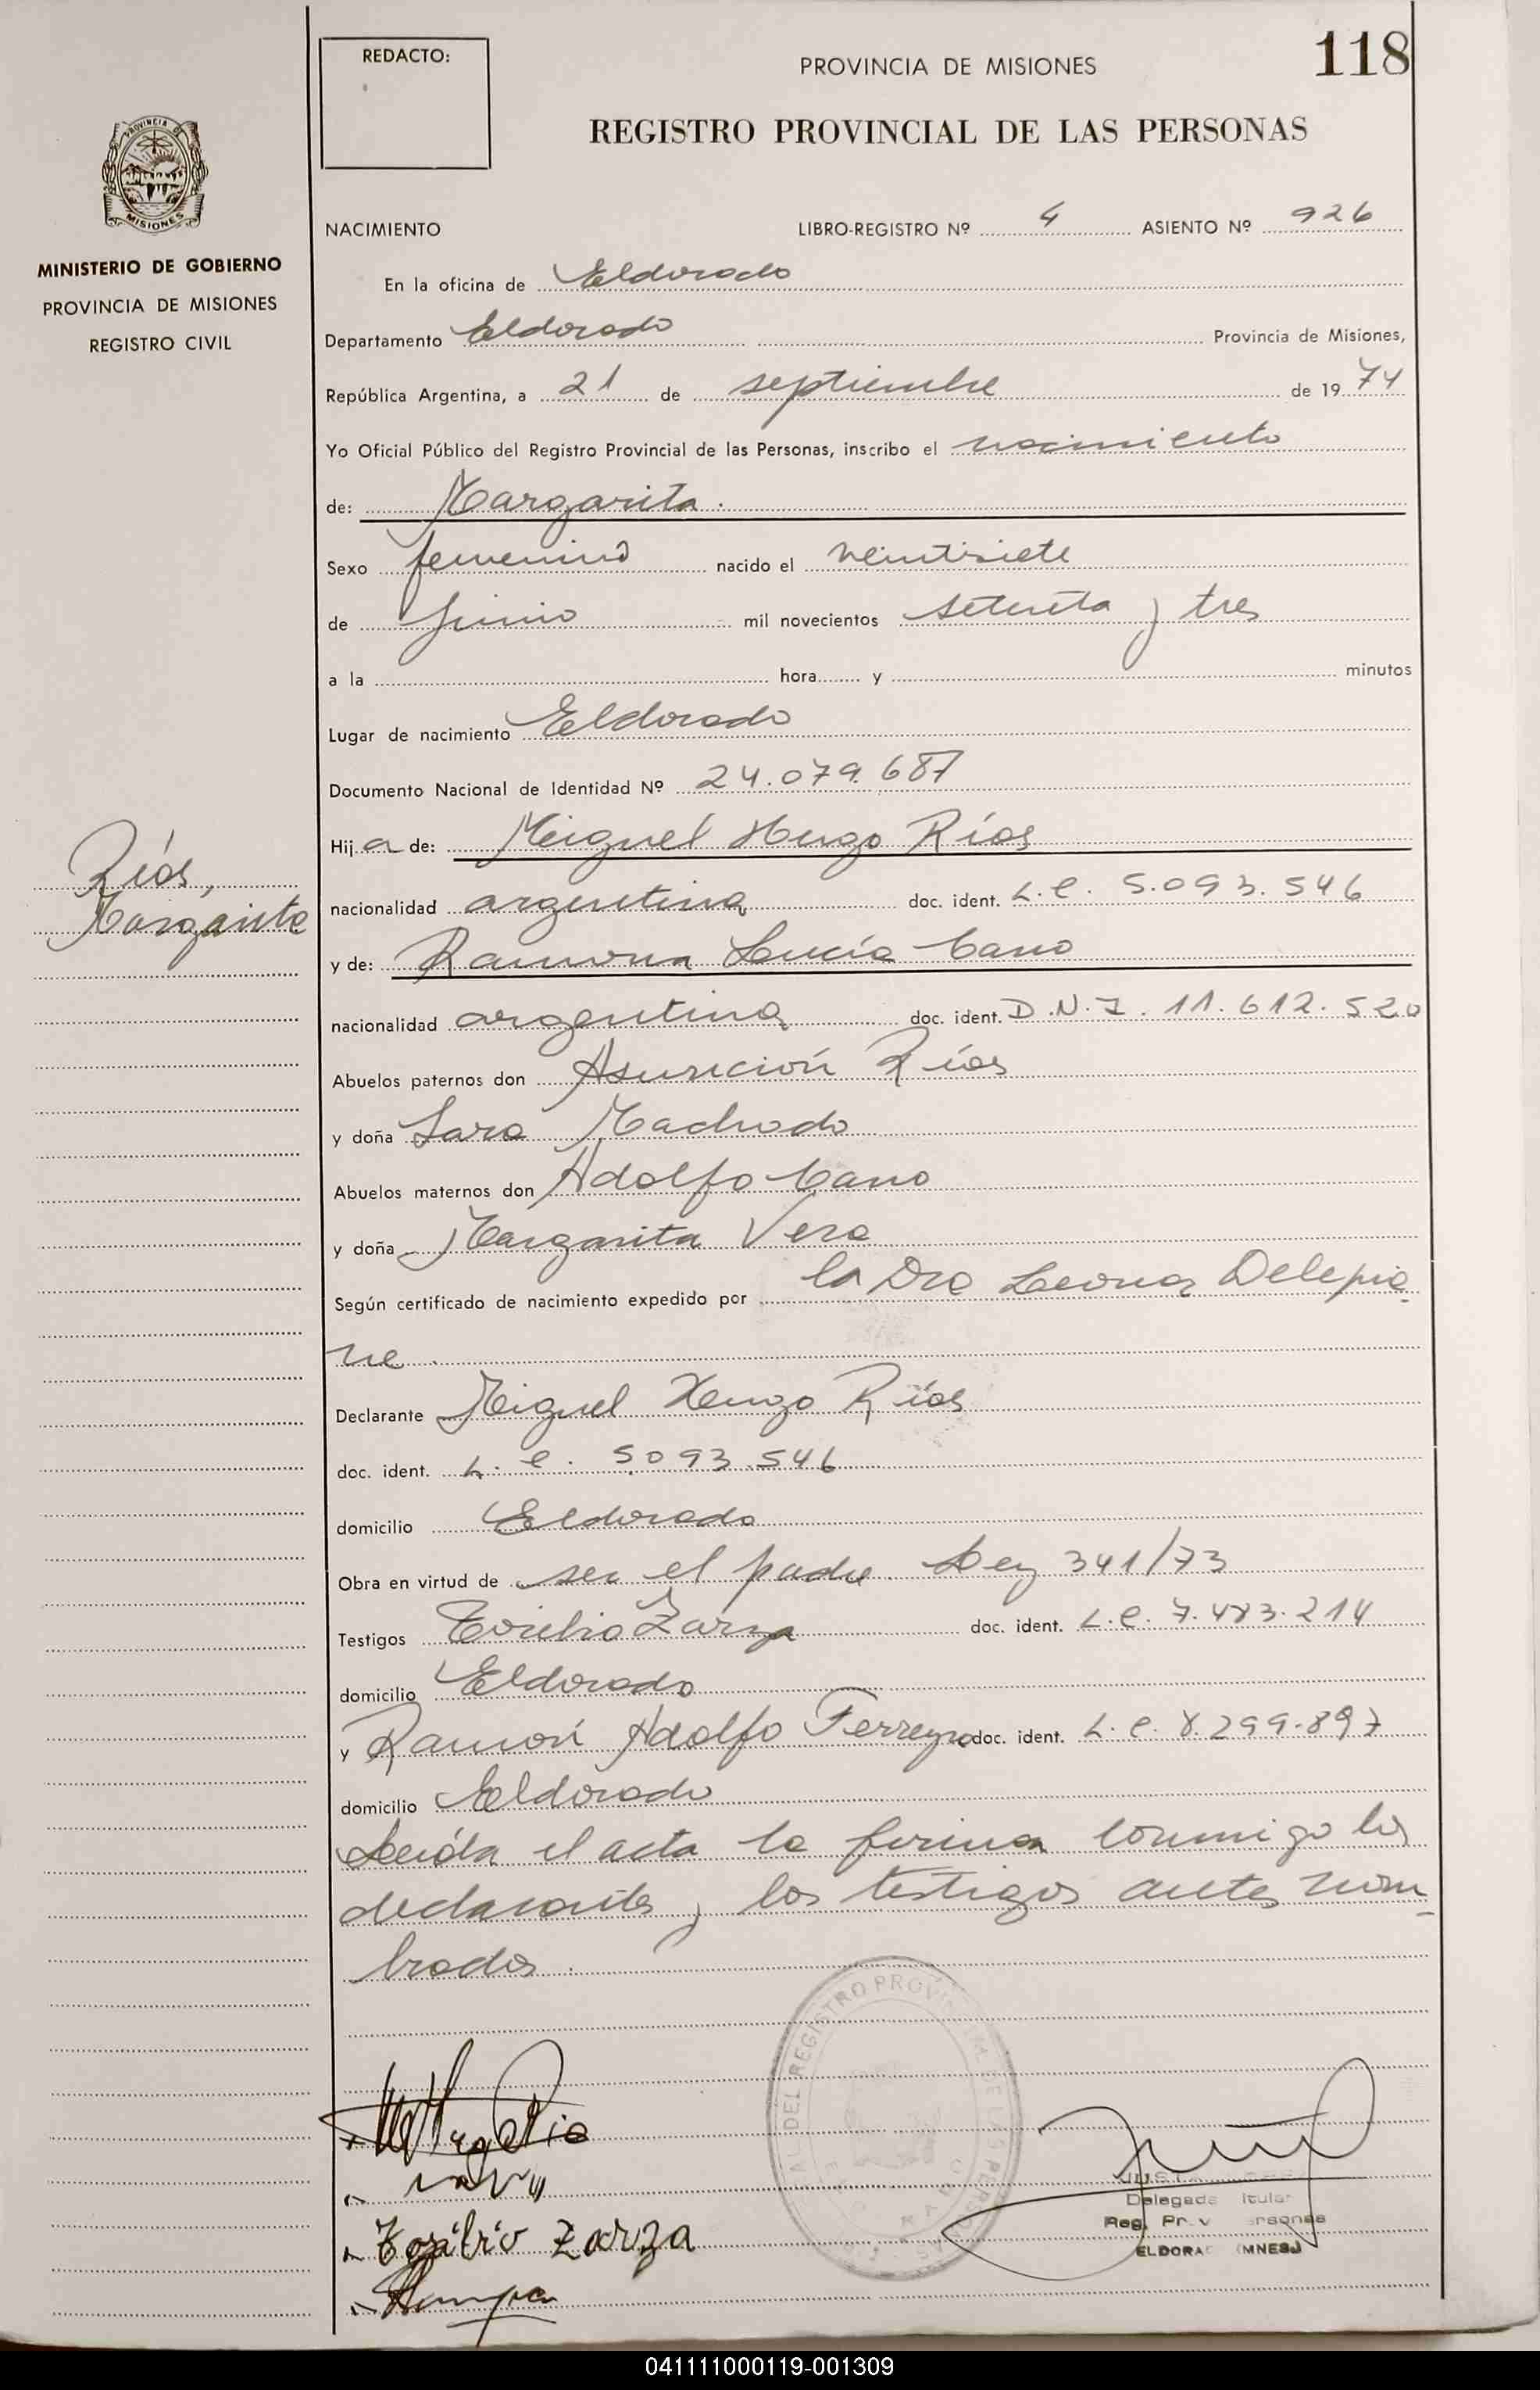 118
REDACTO:
PROVINCIA DE MISIONES
REGISTRO PROVINCIAL DE LAS PERSONAS
PROVINCIA DE
MISIONES
MINISTERIO DE GOBIERNO
PROVINCIA DE MISIONES
REGISTRO CIVIL
NACIMIENTO LIBRO-REGISTRO Nº 4 ASIENTO Nº 926
En la oficina de Eldorado
Departamento Eldorado Provincia de Misiones,
República Argentina, a 21 de septiembre de 19 74
Yo Oficial Público del Registro Provincial de las Personas, inscribo el nacimiento
de: Margarita.
Sexo femenino nacido el veintisiete
de Junio mil novecientos setenta y tres
a la hora y minutos
Lugar de nacimiento Eldorado
Documento Nacional de Identidad Nº 24.079.687
Hij a de: Miguel Hugo Ríos
Ríos,
Margarita
nacionalidad argentina doc. ident. L.E. 5.093.546
y de: Ramona Lucía Cano
nacionalidad argentina doc. ident. D.N.I. 11.612.520
Abuelos paternos don Asunción Ríos
y doña Sara Machado
Abuelos maternos don Adolfo Cano
y doña Margarita Vera
Según certificado de nacimiento expedido por la Dra Leonor Delepia-
ne.
Declarante Miguel Hugo Ríos
doc. ident. L.E. 5093.546
domicilio Eldorado
Obra en virtud de ser el padre. Ley 341/73
Testigos Zarza doc. ident. L.E. 7.483.214
domicilio Eldorado
y Ramón Adolfo Ferreyra doc. ident. L.E. 8.299.897
domicilio Eldorado
Leída el acta la firman conmigo los
declarantes y los testigos antes nom-
brados.
Zarza
Delegada Titular
Reg. Prov. Personas
ELDORADO (MNES)
041111000119-001309